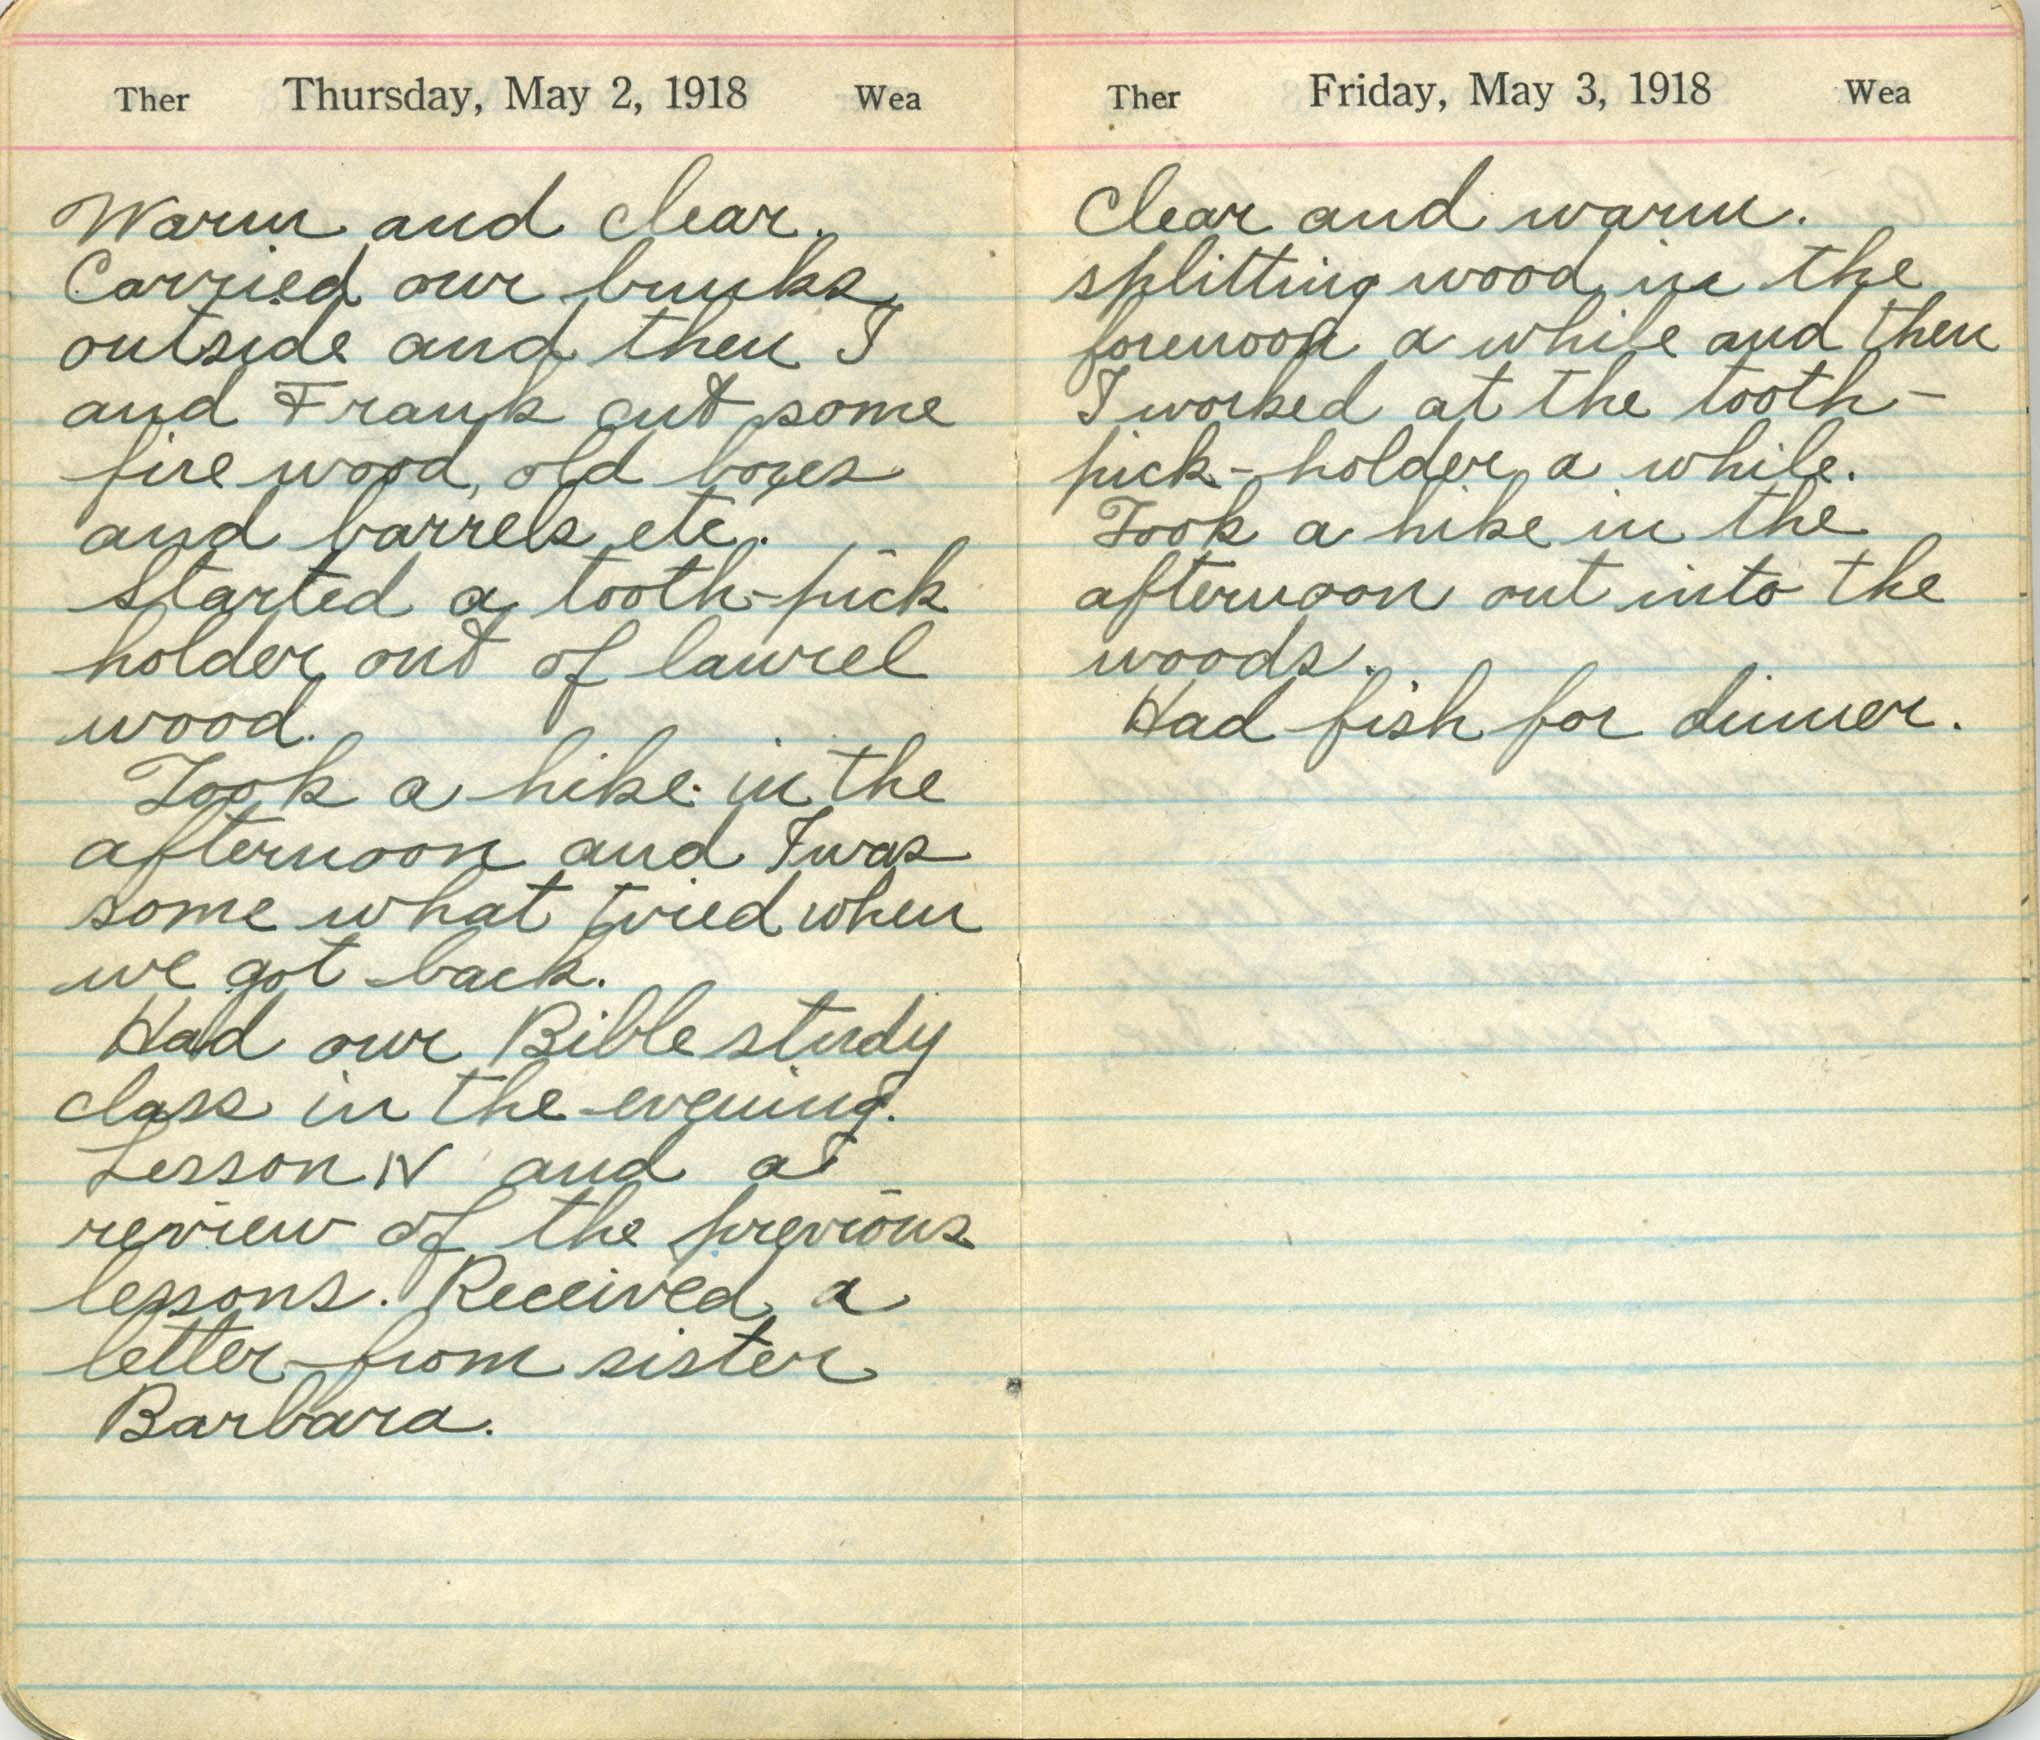 Ther Thursday, May 2, 1918 Wea
Warm and clear.
Carried our bunks
outside and then I
and Frank cut some
fire wood, old boxes
and barrels etc.
Started a tooth-pick
holder out of laurel
wood.
Took a hike in the
afternoon and I was
some what tried when
we got back.
Had our Bible study
class in the evening.
Lesson IV and a
review of the previous
lessons. Received a
letter from sister
Barbara.
Ther Friday, May 3, 1918 Wea
Clear and warm.
splitting wood in the
forenoon a while and then
I worked at the tooth-
pick-holder a while.
Took a hike in the
afternoon out into the
woods.
Had fish for dinner.